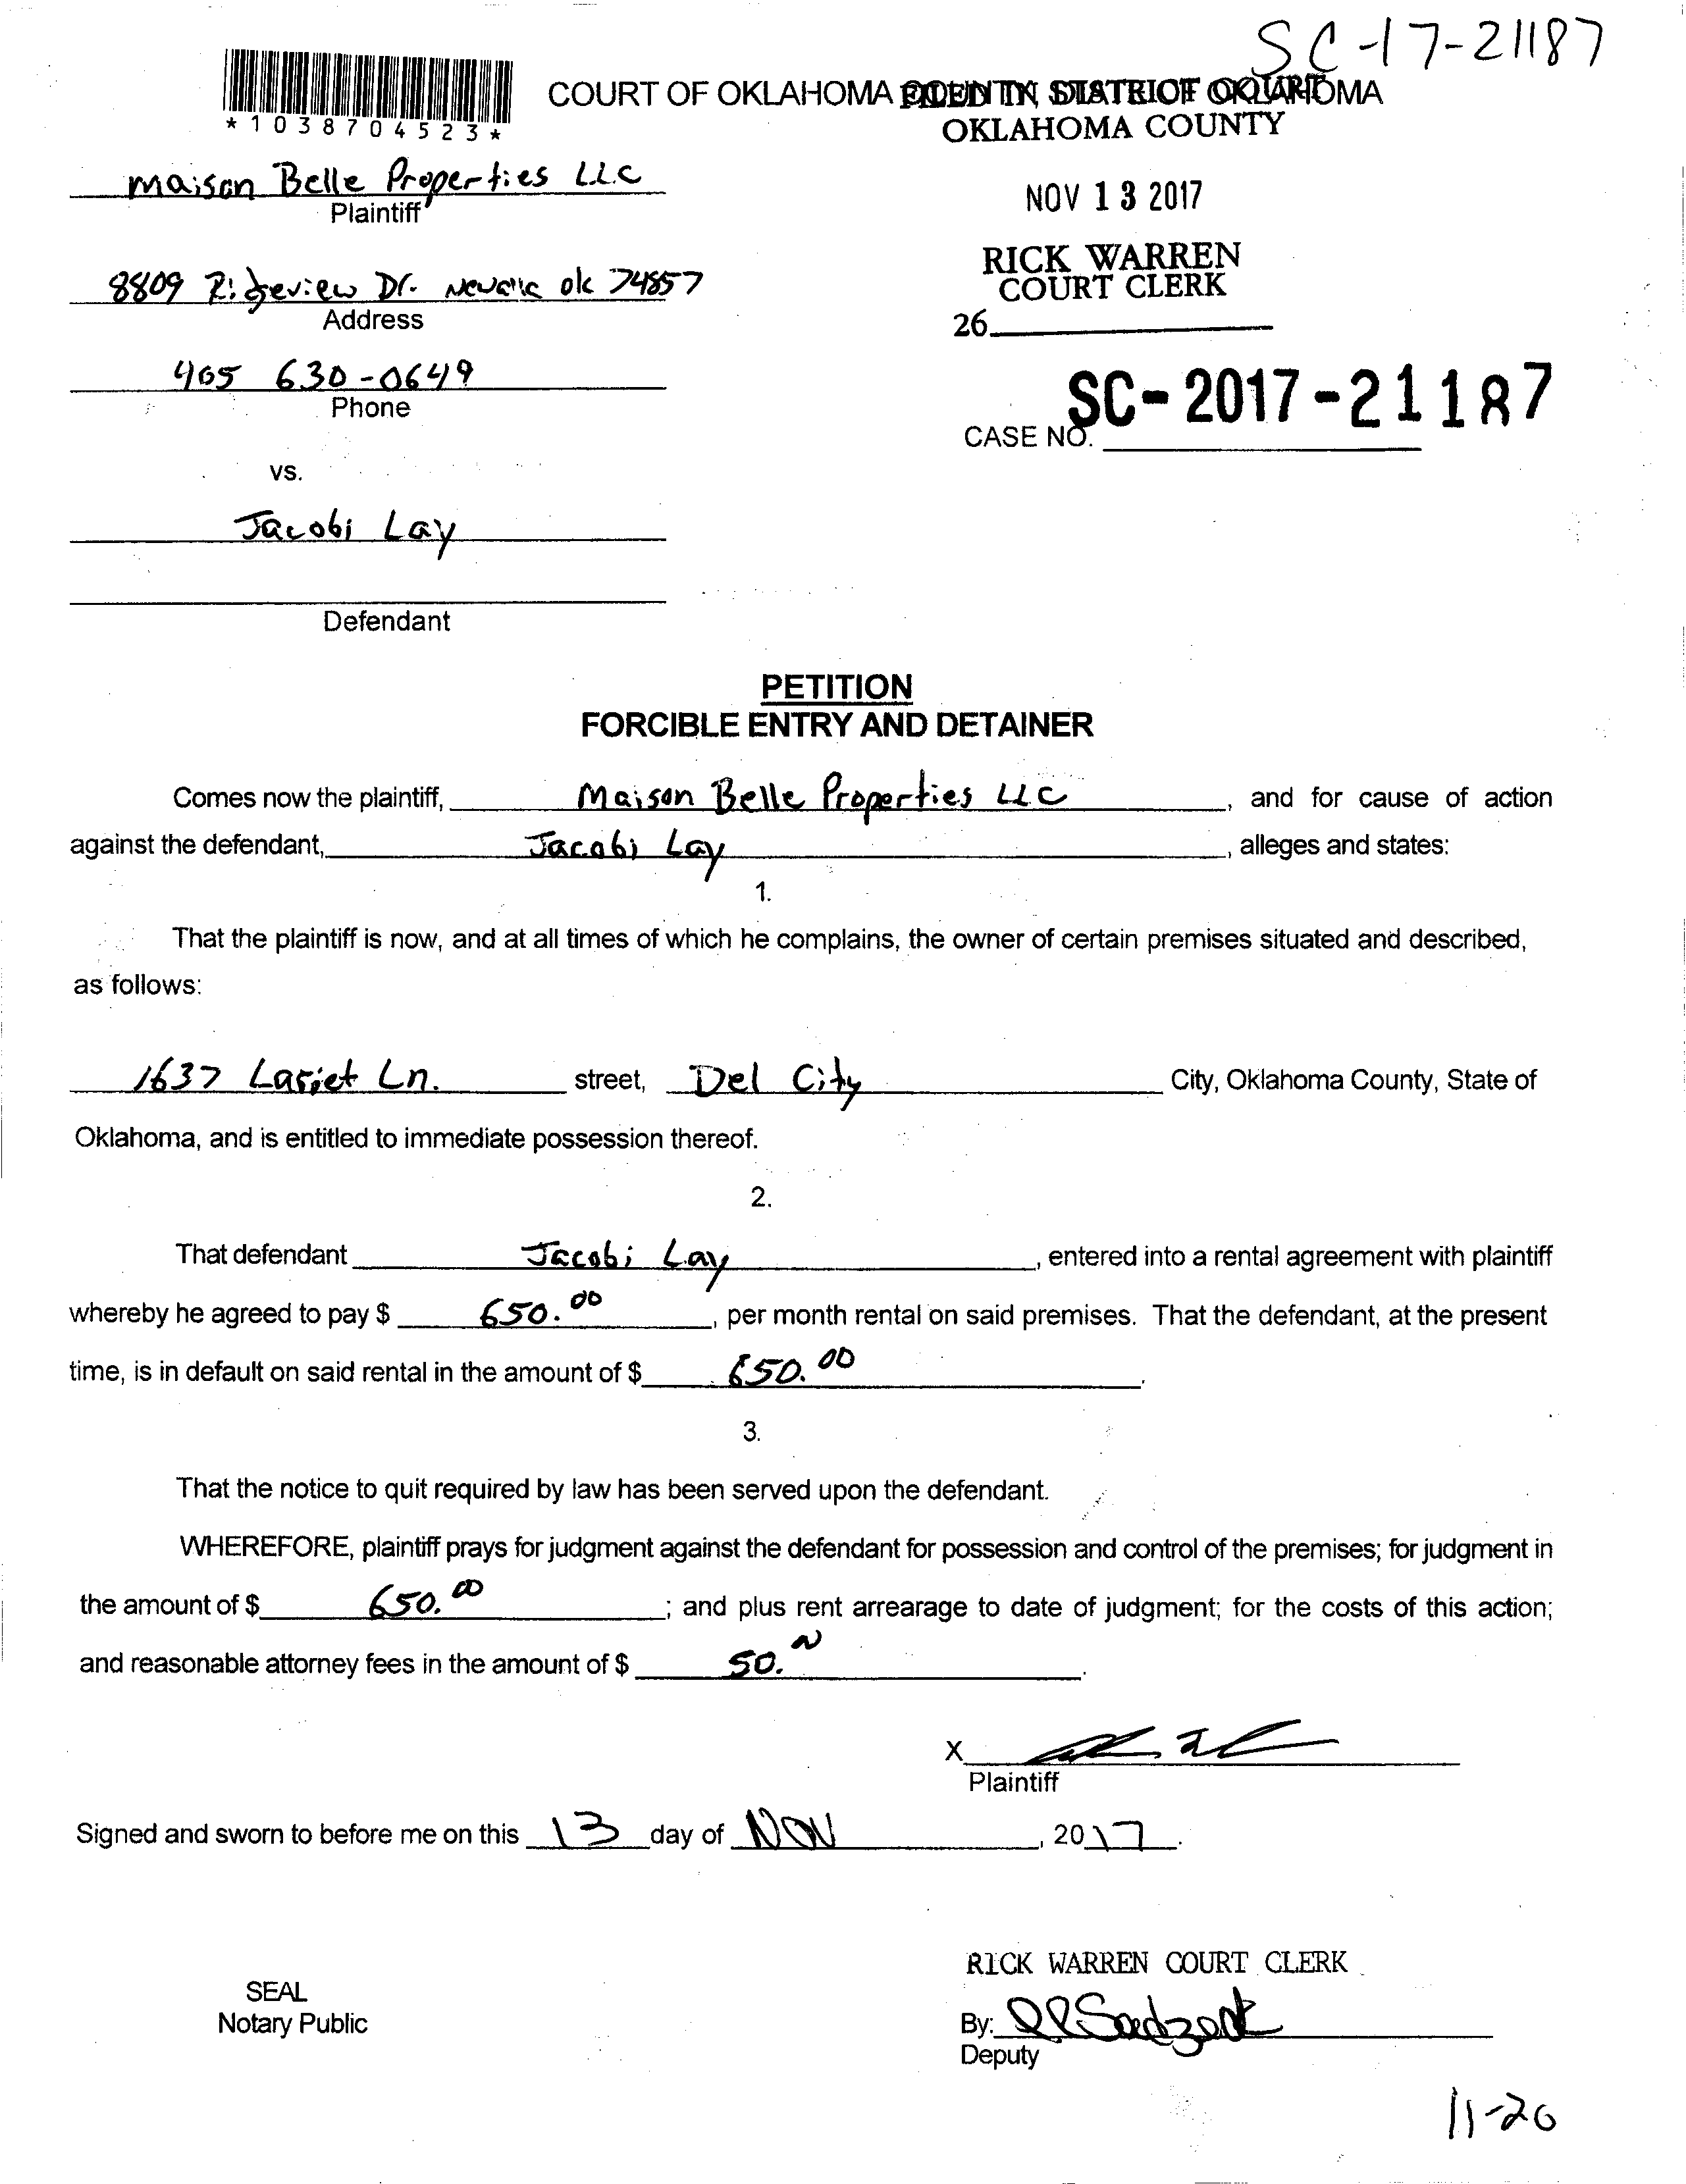 SC-17-21187
COURT OF OKLAHOMA COUNTY, STATE OF OKLAHOMA
FILED IN DISTRICT COURT
OKLAHOMA COUNTY
*1038704523*
Maison Belle Properties LLC
Plaintiff
NOV 13 2017
RICK WARREN
COURT CLERK
26
8809 Ridgeview Dr. Newalla ok 74857
Address
405 630-0649
Phone
SC-2017-21187
CASE NO.
vs.
Jacobi Lay
Defendant
PETITION
FORCIBLE ENTRY AND DETAINER
Comes now the plaintiff, Maison Belle Properties LLC, and for cause of action
against the defendant, Jacobi Lay, alleges and states:
1.
That the plaintiff is now, and at all times of which he complains, the owner of certain premises situated and described,
as follows:
1637 Lariet Ln. street, Del City City, Oklahoma County, State of
Oklahoma, and is entitled to immediate possession thereof.
2.
That defendant Jacobi Lay, entered into a rental agreement with plaintiff
whereby he agreed to pay $ 650.00, per month rental on said premises. That the defendant, at the present
time, is in default on said rental in the amount of $ 650.00.
3.
That the notice to quit required by law has been served upon the defendant.
WHEREFORE, plaintiff prays for judgment against the defendant for possession and control of the premises; for judgment in
the amount of $ 650.00; and plus rent arrearage to date of judgment; for the costs of this action;
and reasonable attorney fees in the amount of $ 50.
X
Plaintiff
Signed and sworn to before me on this 13 day of NOV, 2017.
RICK WARREN COURT CLERK
SEAL
Notary Public
By:
Deputy
11-20